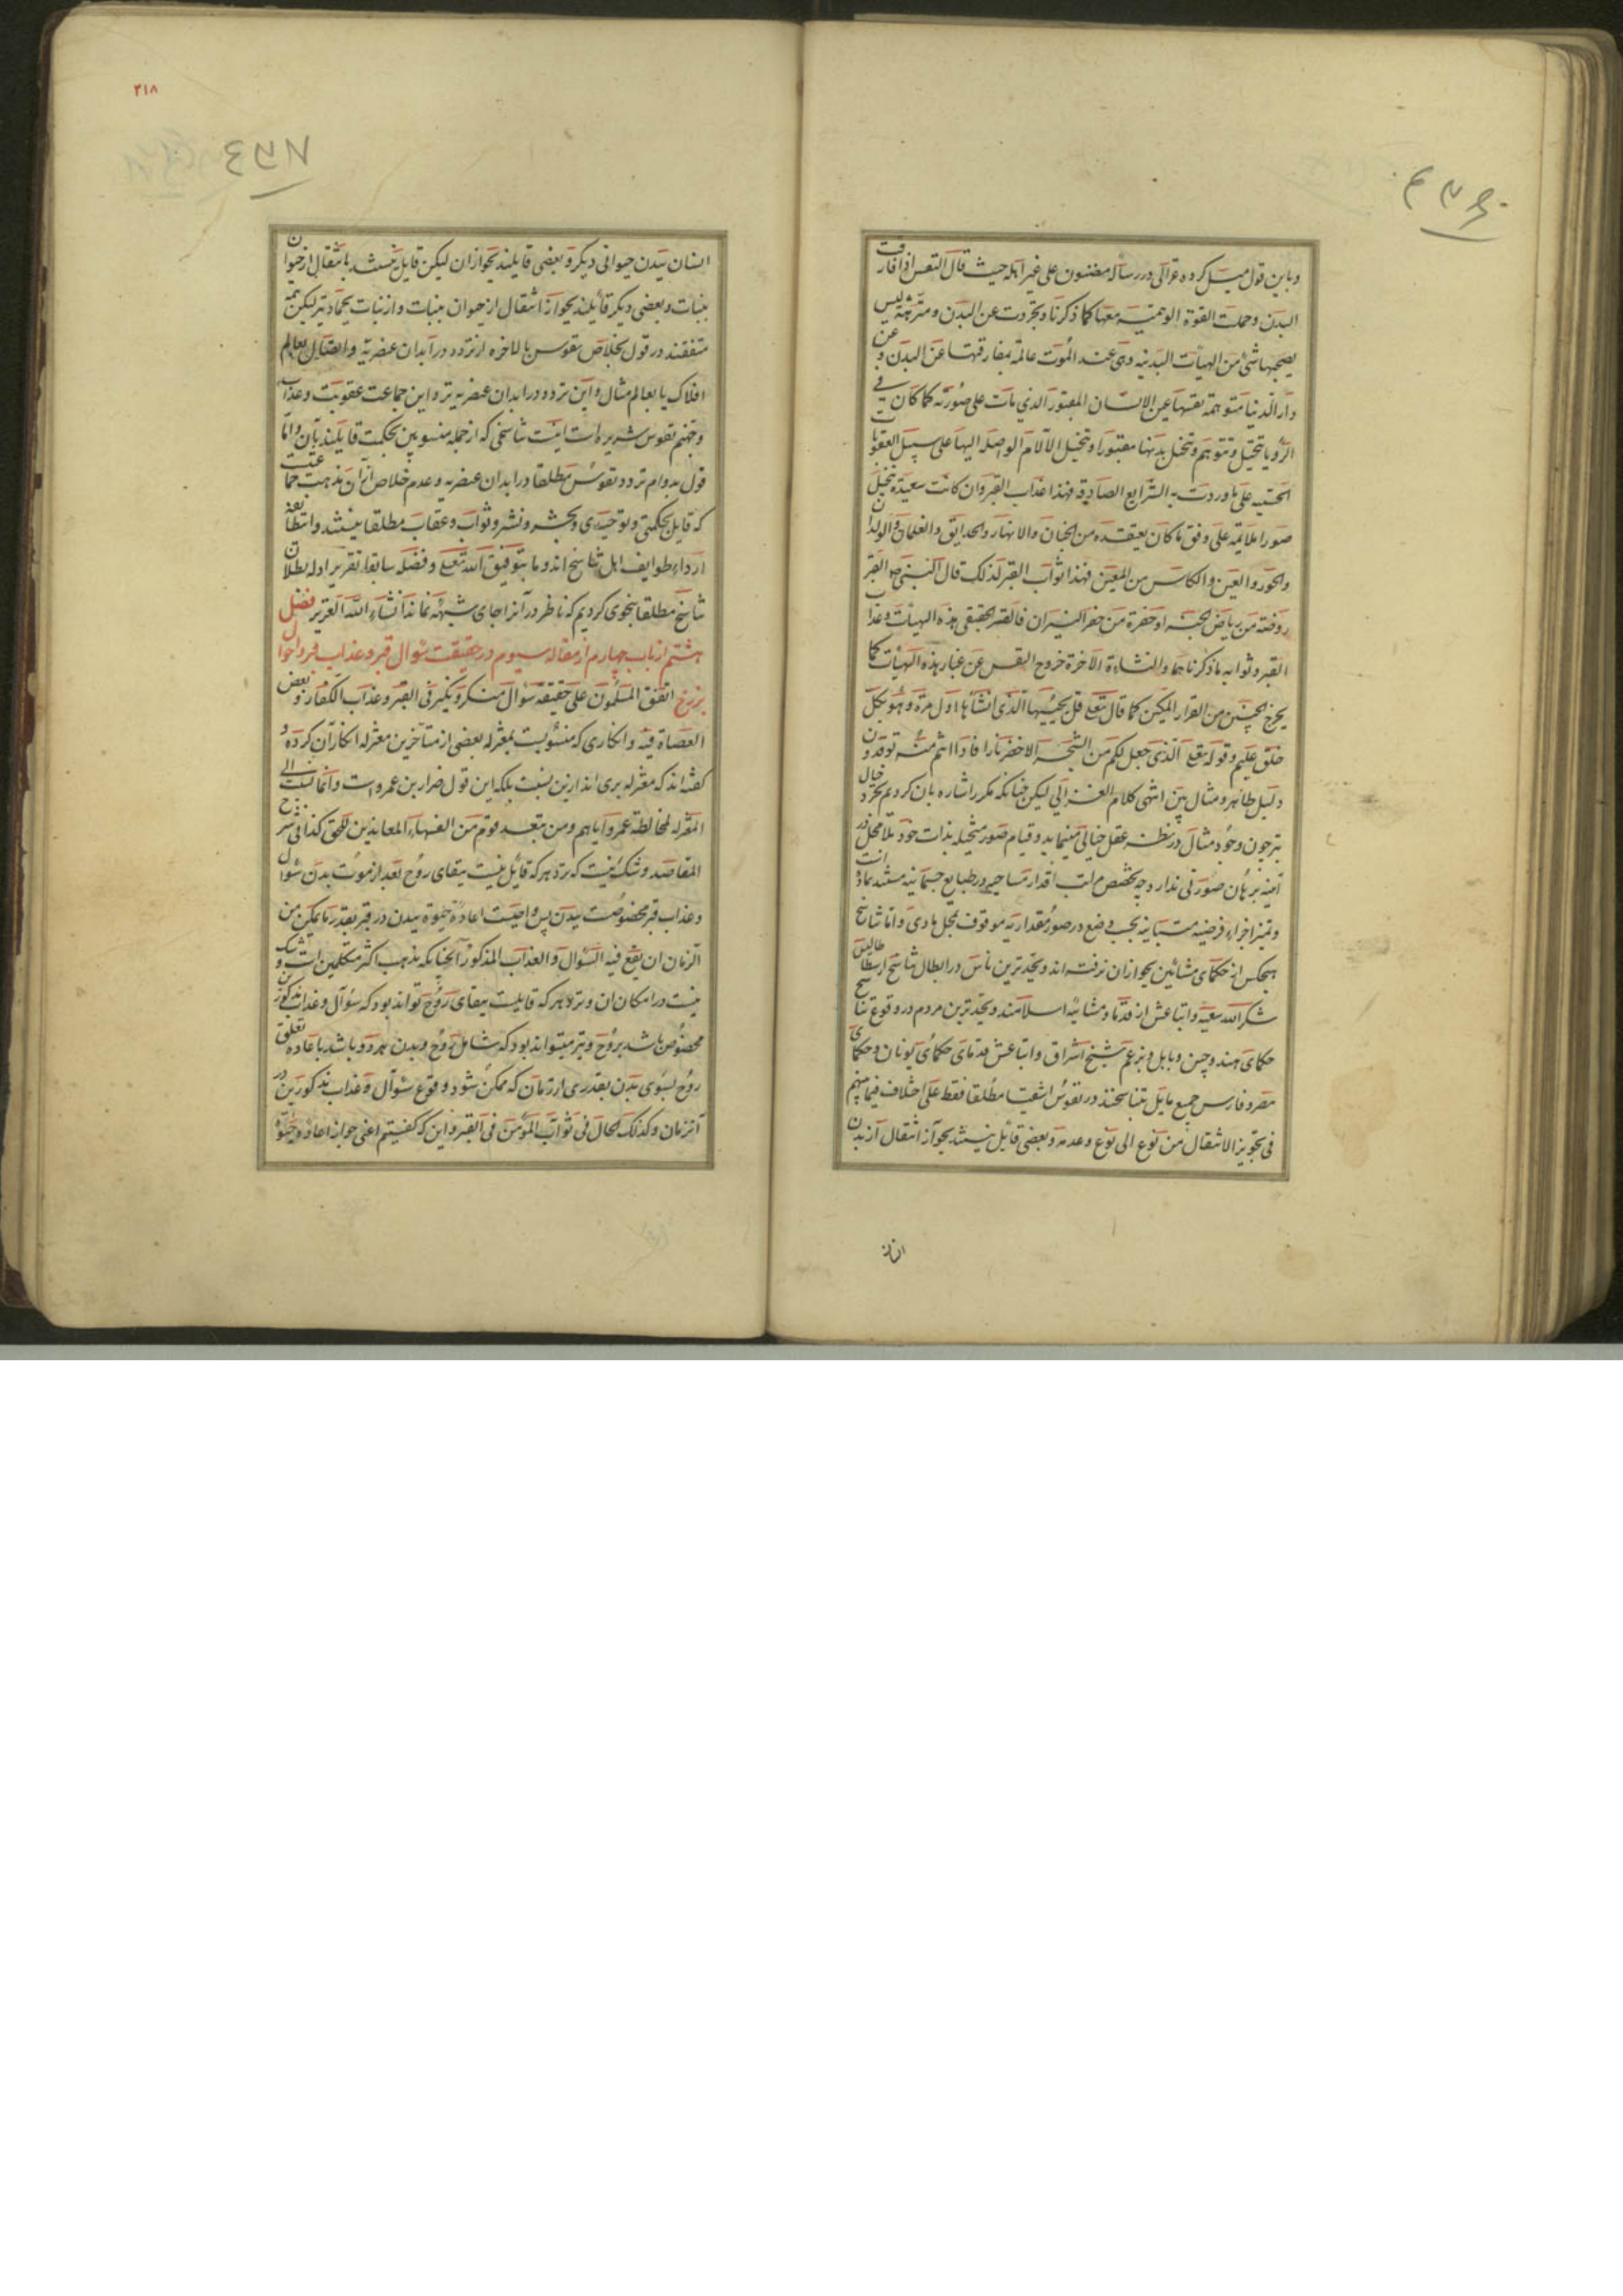 وباین قول میل کرده غزالی در رساله مضنون علی غیر اهله حیث قال النفس اذا فارقت
البدن وحملت القوة الوهمیة معها کما ذکرنا وتجردت عن البدن ومنزهة لیس
یصحبها شئ من الهیأت البدنیه وهی عند الموت عالمة بمفارقتها عن البدن و عن
دار الدنیا متوهمة نفسها عین الانسان المقبور الذی مات علی صورته کما کان فی
الرؤیا یتخیل وتتوهم وتتخیل بدنها مقبورا وتتخیل الآلام الواصلة الیها علی سبیل العقوبات
الحسّیه علی ما وردت به الشرایع الصادقه فهذا عذاب القبر وان کانت سعیدة تتخیل
صورا ملایمة علی وفق ما کان یعتقده من الجنان والانهار والحدایق والغلمان والولدان
والحور والعین والکاس من المعین فهذا ثواب القبر لذلک قال النبی ص القبر
روضة من ریاض الجنه او حفرة من حفر النیران فالقبر الحقیقی هذه الهیأت وعذاب
القبر وثوابه ما ذکرناهما والنشاءة الآخرة خروج النفس عن غبار هذه الهیأت کما
یخرج الجنین من القرار المکین کما قال تعلی قل یحییها الذی انشأها اول مرة وهو بکل
خلق علیم وقوله تعلی الذی جعل لکم من الشجر الاخضر نارا فاذا انتم منه توقدون
دلیل ظاهر ومثال بین انتهی کلام الغزالی لیکن چنانکه مکرر اشاره بان کردیم تجرد خیال
نیز چون وجود مثال در نظر عقل خیالی مینماید وقیام صور متخیله بذات خود بلا محل در
آینه برهان صورتی ندارد چه تخصص مراتب اقدار مساحی در طبایع جسمانیه مستند بماده است
وتمیز اجزاء فرضیه متباینه بحسب وضع در صور مقداریه موقوف بمحل مادی واما تناسخ
هیچکس از حکمای مشائین بجواز ان نرفته اند وبجدترین ناس در ابطال تناسخ ارسطاطالیس
شکر الله سعیه واتباعش از قدما ومشائیه اسلامند وبجدترین مردم در وقوع تناسخ
حکمای هند وچین وبابل وبزعم شیخ اشراق واتباعش قدمای حکمای یونان وحکمای
مصر وفارس جمیع مایل بتناسخند در نفوس اشقیا مطلقا فقط علی اختلاف فیما بینهم
فی تجویز الانتقال من نوع الی نوع وعدمه وبعضی قائل نیستند بجواز انتقال از بدن
٢١٨
انسان ببدن حیوانی دیگر وبعضی قایلند بجواز ان لیکن قایل نیستند بانتقال از حیوان
بنبات وبعضی دیگر قائلند بجواز انتقال از حیوان بنبات واز نبات بجماد نیز لیکن همه
متفقند در قول بخلاص نفوس بالاخره از تردد در ابدان عنصریه واتصال بعالم
افلاک یا بعالم مثال واین تردد در ابدان عنصریه نزد این جماعت عقوبت وعذاب
وجهنم نفوس شریره است اینست تناسخی که از جمله منسوبین بحکمت قایلند بآن واما
قول بدوام تردد نفوس مطلقا در ابدان عنصریه وعدم خلاص از آن مذهب جماعتیست
که قایل بحکمتی وتوحیدی وبحشر ونشر وثواب وعقاب مطلقا نیستند وانطائفه
ارداء طوایف اهل تناسخ اند وما بتوفیق الله تعلی وفضله سابقا تقریر ادله بطلان
تناسخ مطلقا بنحوی کردیم که ناظر در آنرا جای شبهه نماند انشاء الله العزیز فصل
هشتم از باب چهارم از مقاله سیوم در حقیقت سؤال قبر وعذاب قبر واحوال
برزخ اتفق المسلمون علی حقیقة سؤال منکر ونکیر فی القبر وعذاب الکفار و بعض
العصاة فیه وانکاری که منسوبست بمعتزله بعضی از متأخرین معتزله انکار آن کرده و
گفته اند که معتزله بری اند ازین نسبت بلکه این قول ضرار بن عمرو است وانما نسب الی
المعتزله لمخالطة عمرو ایاهم ومن تبعه قوم من السفهاء المعاندین للحق کذا فی شرح
المقاصد وشک نیست که نزد هر که قایل نیست ببقای روح بعد از موت بدن سؤال
وعذاب قبر مخصوصست ببدن پس واجبست اعاده حیوة ببدن در قبر بقدر ما یمکن من
الزمان ان یقع فیه السؤال والعذاب المذکور آنچنانکه مذهب اکثر متکلمین است و شک
نیست در امکان ان ونزد هر که قایلست ببقای روح تواند بود که سؤال وعذاب مذکورین
مخصوص باشد بروح ونیز میتواند بود که شامل روح وبدن هر دو باشد باعاده تعلق
روح بسوی بدن بقدری از زمان که ممکن شود وقوع سؤال وعذاب مذکورین در
آنزمان وکذلک الحال فی ثواب المؤمن فی القبر واین که گفتیم اعنی جواز اعاده حیوة